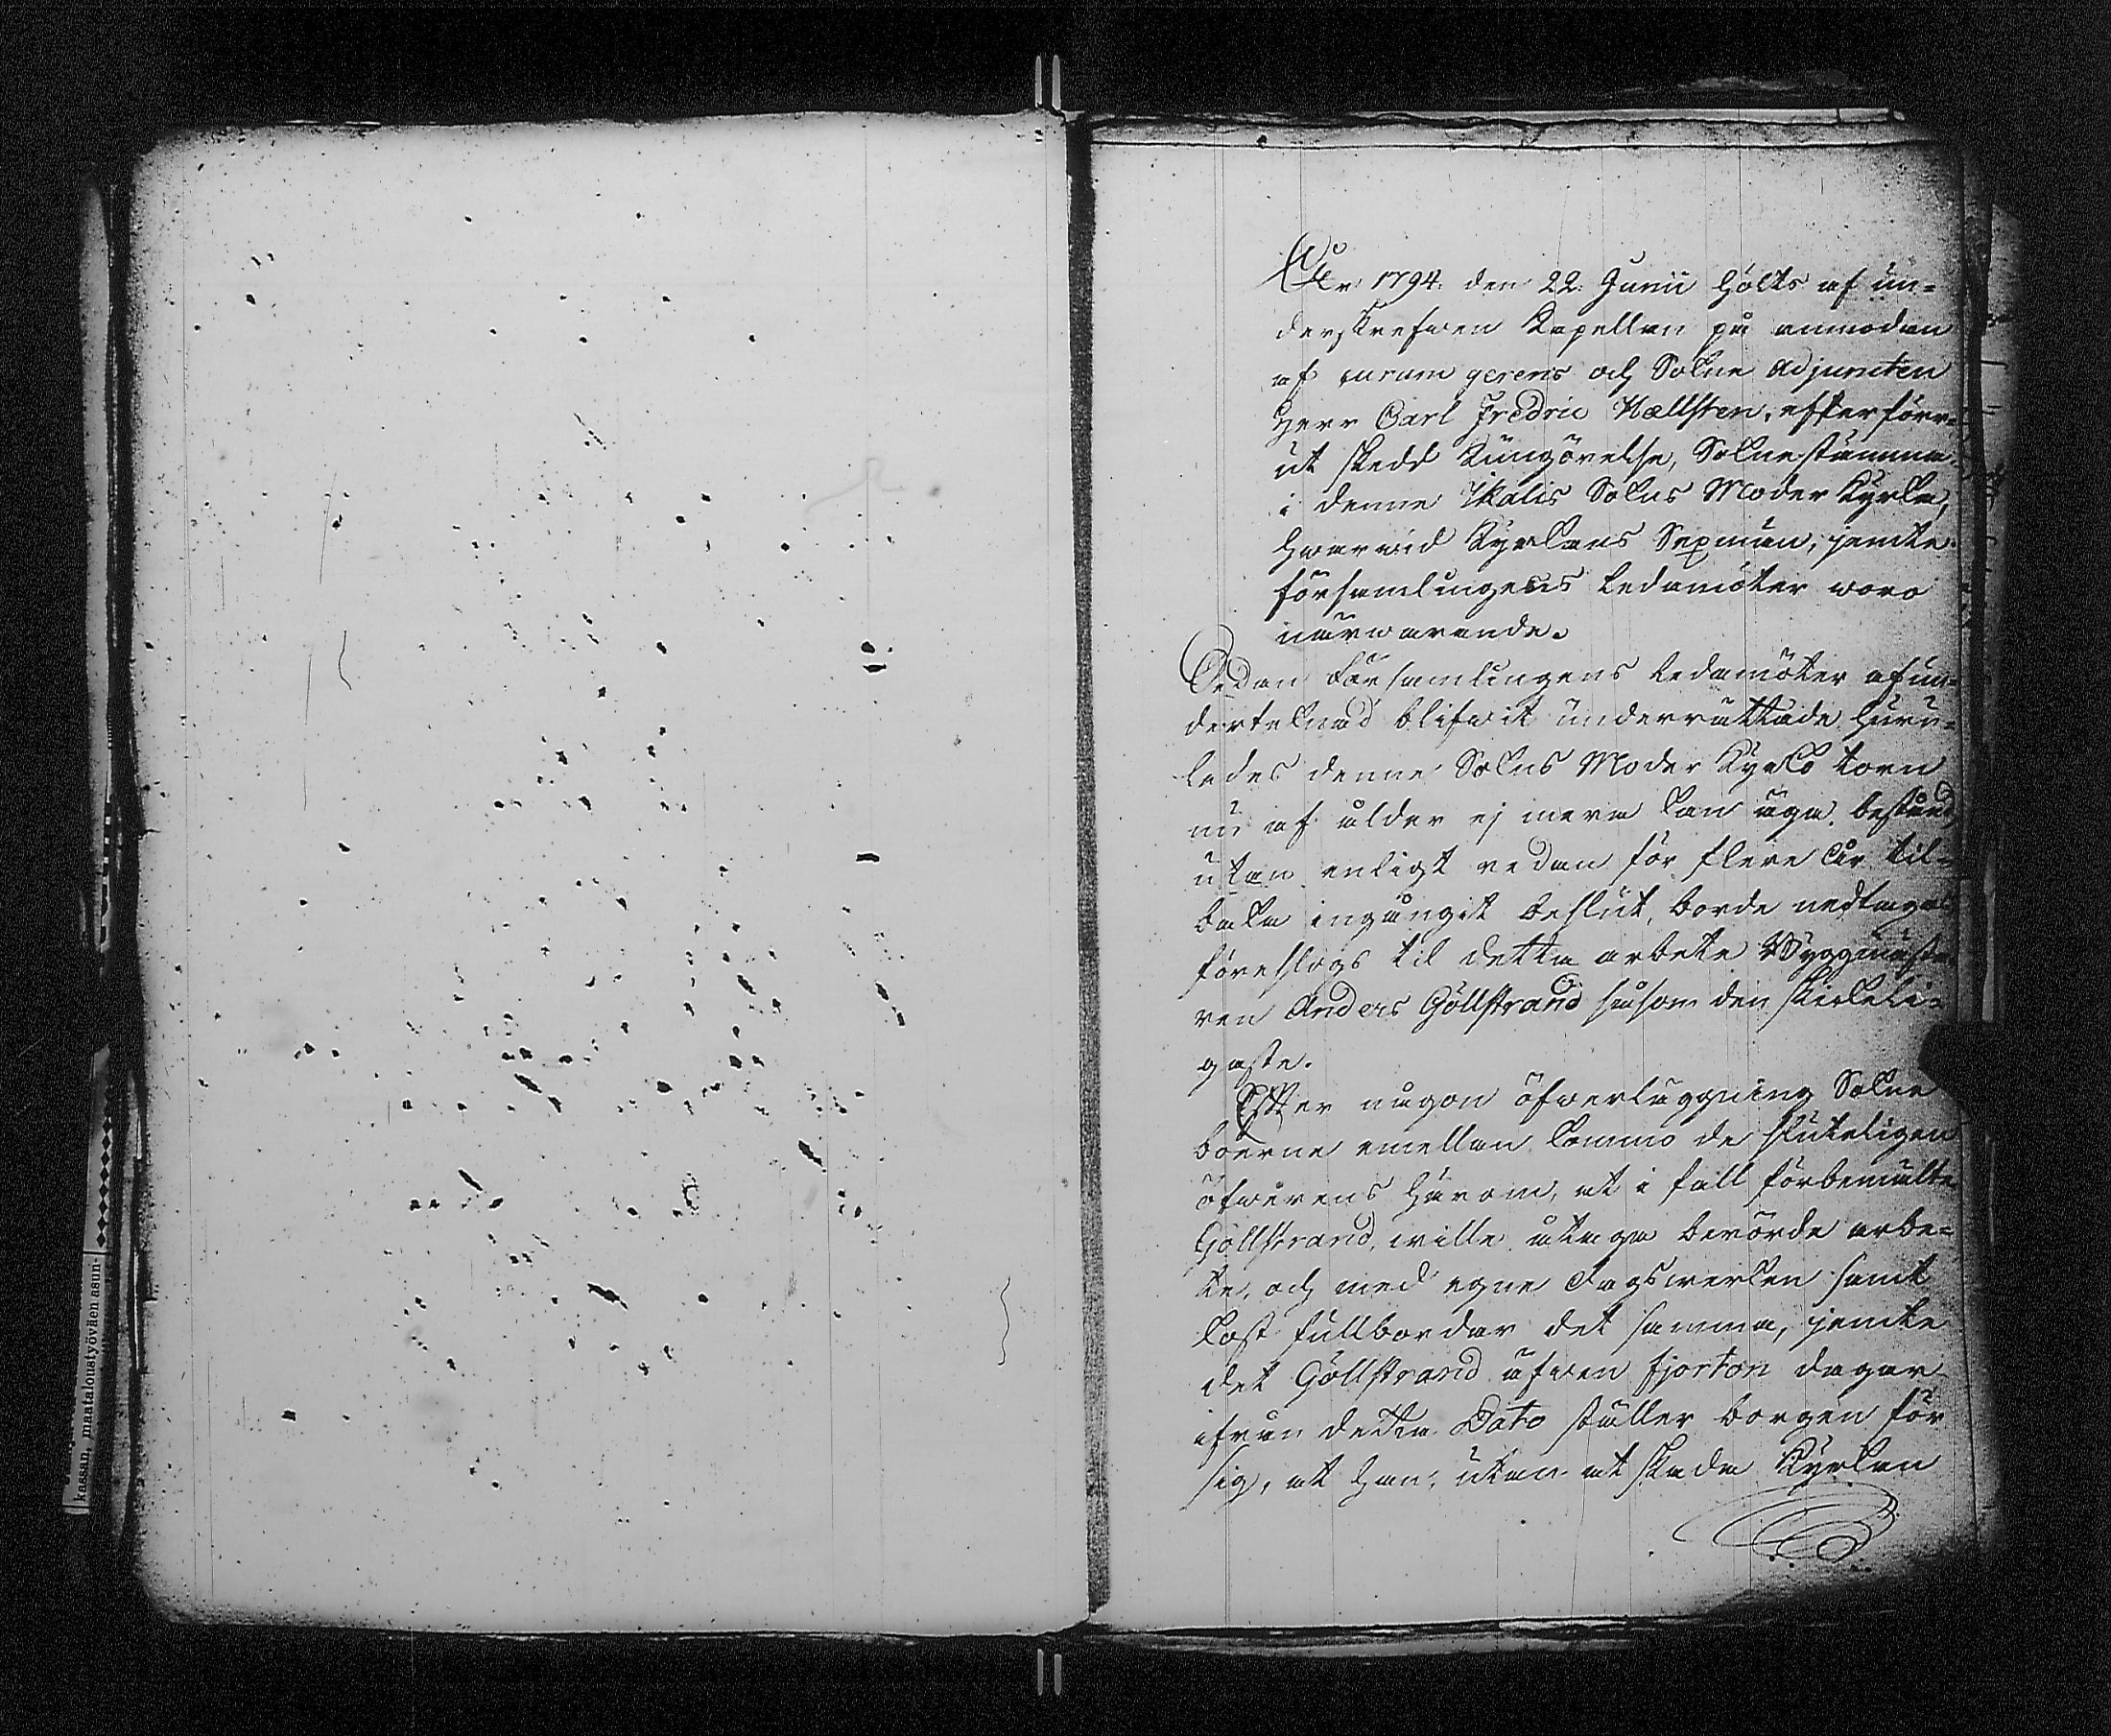 År 1794. den 22. Junii hölts af un-
derskrefwen Kapellan på anmodan
af curam gerens och Sokne Adjuncten
Herr Carl Fredric Hællsten, efter förr-
ut skedd kungörelse, Soknestämma
i denne Ikalis Sokns Moder Kyrka,
hwarwid Kyrkans Sexmän, jemte
församlingens Ledamöter woro
närwarande.
Sedan Församlingens Ledamöter af un-
derteknad blifwit underrättade huru-
ledes denne Sokns Moder Kyrko torn
nu af ålder ej mera kan äga bestånd,
utan enligt redan för flere år til-
baka ingånget beslut, borde nedtagas
föreslogs til detta arbete Byggmästa
ren Anders Göllstrand såsom den skickeli-
gaste.
Efter någon öfwerläggning Sokne
boerne emellan kommo de sluteligen
öfwerens härom, at i fall förbemälte
Göllstrand wille åtaga berörde arbe-
te, och med egne Dagswerken samt
kost fullbordar det samma, jemte
det Göllstrand äfwen fjorton dagar
ifrån detta Dato ställer borgen för
sig, at han, utan at skada Kyrkan
kassan, maataloustyöväen asun-